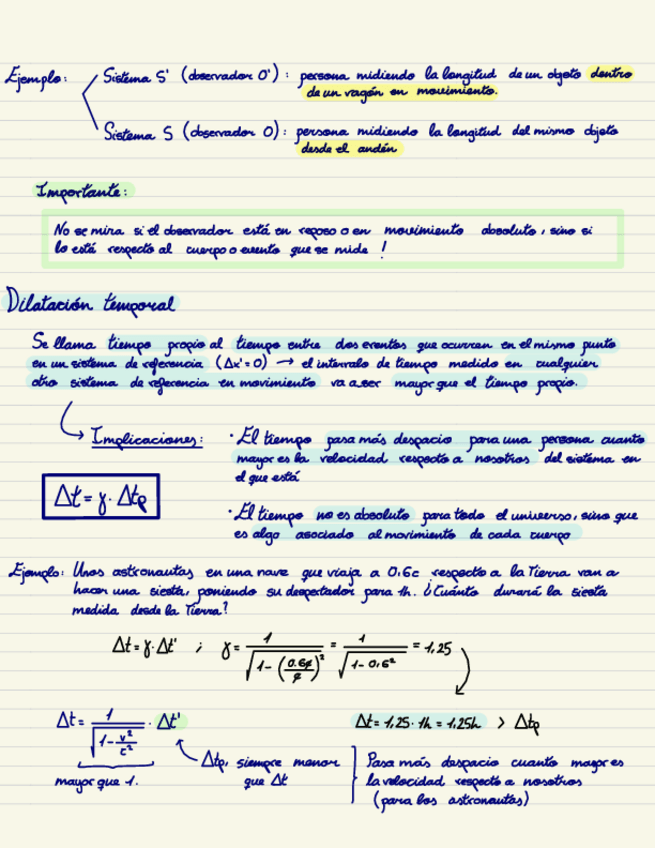 Ejemplo: Sistema S' (observador O'): persona midiendo la longitud de un objeto dentro
de un vagón en movimiento.
Sistema S (observador O): persona midiendo la longitud del mismo objeto
desde el andén
Importante:
No se mira si el observador está en reposo o en movimiento absoluto, sino si
lo está respecto al cuerpo o evento que se mide !
Dilatación temporal
Se llama tiempo propio al tiempo entre dos eventos que ocurren en el mismo punto
en un sistema de referencia (Δx'=0) → el intervalo de tiempo medido en cualquier
otro sistema de referencia en movimiento va a ser mayor que el tiempo propio.
Implicaciones:
· El tiempo pasa más despacio para una persona cuanto
mayor es la velocidad respecto a nosotros del sistema en
el que está
Δt = γ · Δtp
· El tiempo no es absoluto para todo el universo, sino que
es algo asociado al movimiento de cada cuerpo
Ejemplo: Unos astronautas en una nave que viaja a 0.6c respecto a la Tierra van a
hacer una siesta, poniendo su despertador para 1h. ¿Cuánto durará la siesta
medida desde la Tierra?
Δt = γ · Δt' ; γ = 1/√(1-(0.6c/c)²) = 1/√(1-0.6²) = 1,25
Δt = 1/√(1-v²/c²) · Δt'
Δt = 1,25 · 1h = 1,25h > Δtp
mayor que 1.
Δtp, siempre menor
que Δt
Pasa más despacio cuanto mayor es
la velocidad respecto a nosotros
(para los astronautas)